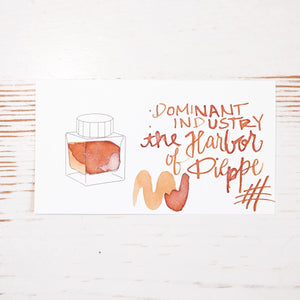 DOMINANT
INDUSTRY
the Harbor
of Dieppe